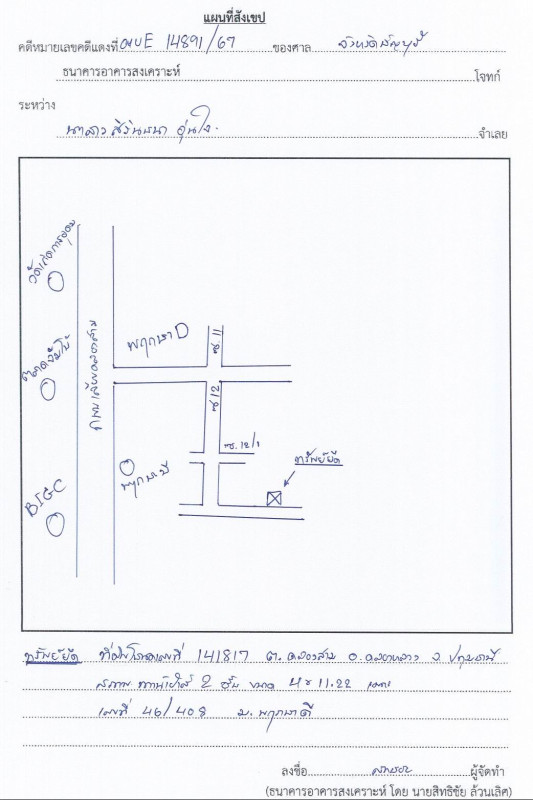 แผนที่สังเขป
คดีหมายเลขคดีแดงที่ ผบE 14891/67 ของศาล จังหวัดธัญบุรี
ธนาคารอาคารสงเคราะห์ โจทก์
ระหว่าง
นางสาว อุ่นใจ จำเลย
วัด
ตลาด
BIGC
ถนนเลียบคลองสาม
พฤกษา D
ซ.11
ซ 12
ซ.12/1
พฤกษา
ทรัพย์ยึด
ทรัพย์ยึด ที่ดินโฉนดเลขที่ 141817 ต.คลองสาม อ.คลองหลวง จ.ปทุมธานี
สภาพ ทาวน์เฮ้าส์ 2 ชั้น ขนาด 4x11.22 เมตร
เลขที่ 46/408 ม.พฤกษา
ลงชื่อ ผู้จัดทำ
(ธนาคารอาคารสงเคราะห์ โดย นายสิทธิชัย ล้วนเลิศ)